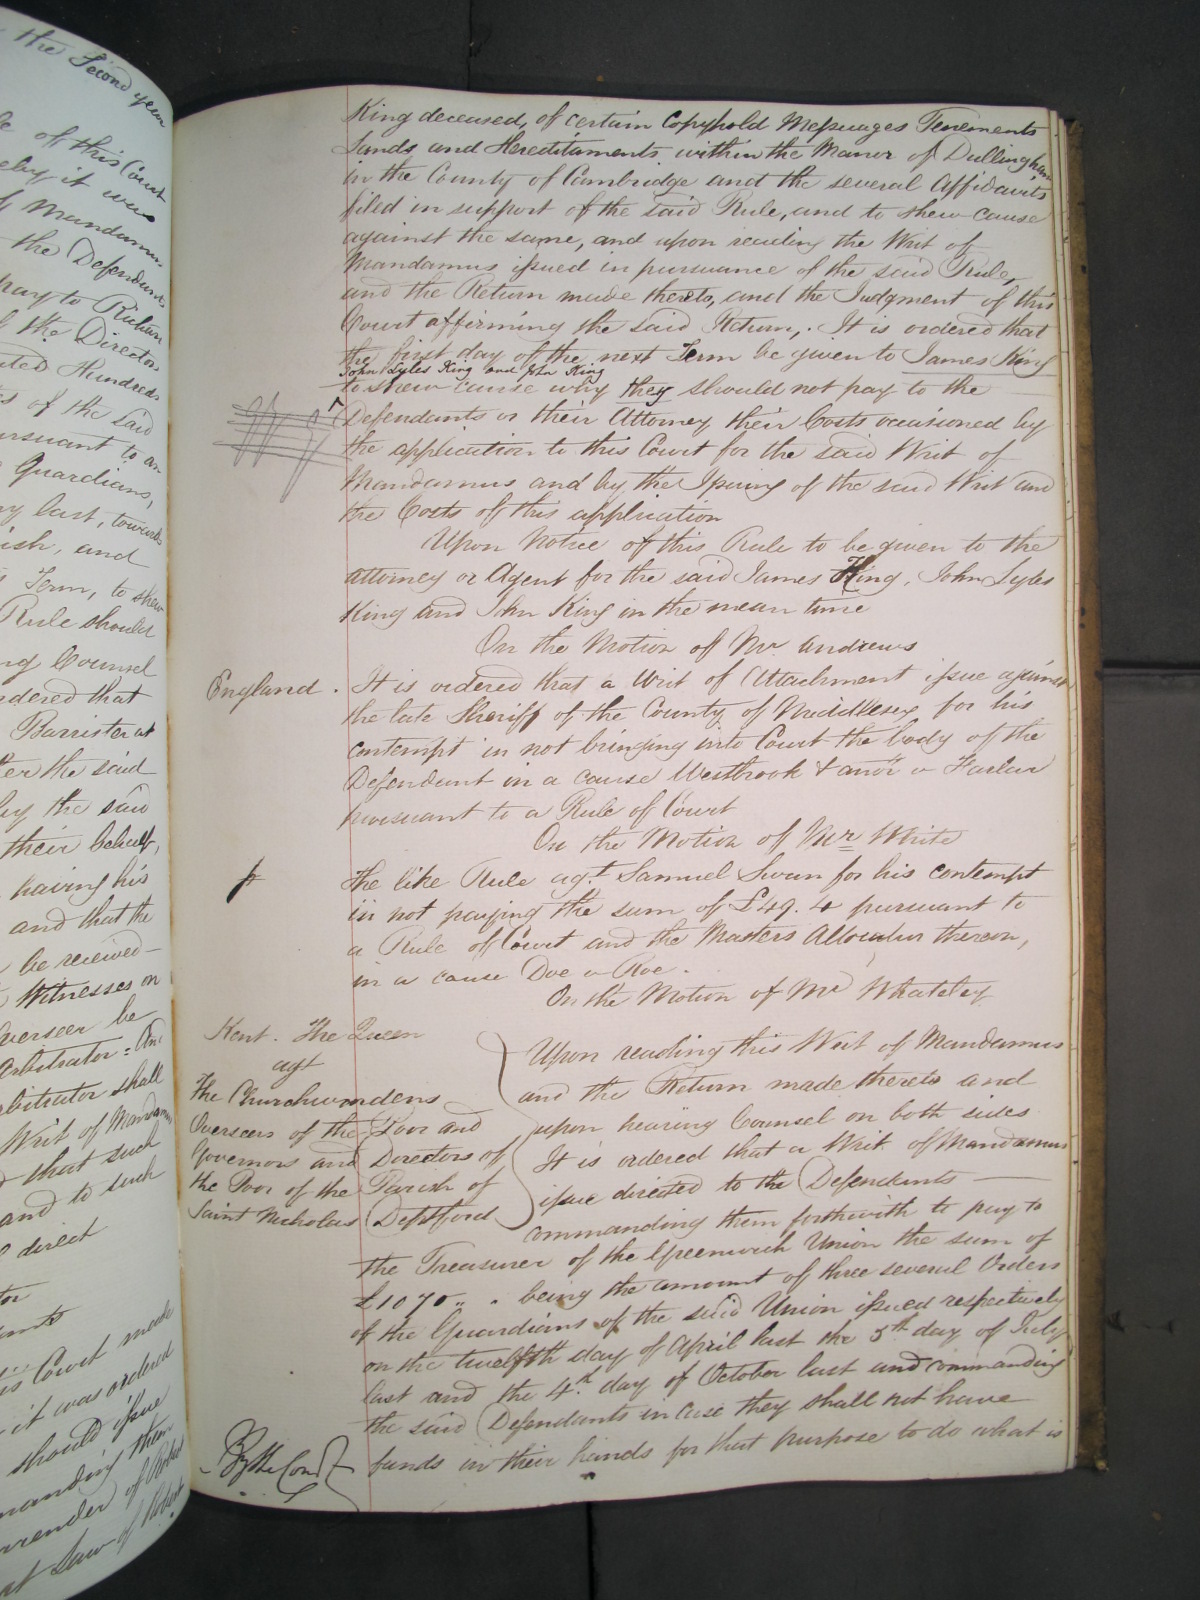 the Second year
of this Court
it was
Mandamus
the Defendants
pay to Richard
the Directors
Hundreds
of the said
pursuant to an
Guardians,
last, towards
ish, and
Term, to shew
Rule should
Counsel
ordered that
Barrister at
the said
by the said
their behalf,
having his
and that the
be received
Witnesses on
Overseer be
Arbitrator = And
Arbitrator shall
Writ of Mandamus
that such
and to such
direct
Court made
it was ordered
should issue
commanding them
surrender of Robert
at Law of Robert
King deceased, of certain Copyhold Messuages Tenements
Lands and Hereditaments within the Manor of Dullingham
in the County of Cambridge and the several Affidavits
filed in support of the said Rule, and to shew cause
against the same, and upon reading the Writ of
Mandamus issued in pursuance of the said Rule,
and the Return made thereto, and the Judgment of this
Court affirming the said Return, It is ordered that
the first day of the next Term be given to James King
John Lyles King and John King
to shew cause why they should not pay to the
Defendants or their Attorney their Costs occasioned by
the application to this Court for the said Writ of
Mandamus and by the Issuing of the said Writ and
the Costs of this application
Upon Notice of this Rule to be given to the
Attorney or Agent for the said James King, John Lyles
King and John King in the mean time
On the Motion of Mr Andrews
England. It is ordered that a Writ of Attachment issue against
the late Sheriff of the County of Middlesex for his
contempt in not bringing into Court the body of the
Defendant in a cause Westbrook & anor v
pursuant to a Rule of Court
On the Motion of Mr White
The like Rule agt Samuel Swan for his contempt
in not paying the sum of £49. 4 pursuant to
a Rule of Court and the Masters Allocatur thereon,
in a cause Doe v Roe.
On the Motion of Mr Whateley
Kent. The Queen
agt
The Churchwardens
Overseers of the Poor and
Governors and Directors of
the Poor of the Parish of
Saint Nicholas Deptford
Upon reading this Writ of Mandamus
and the Return made thereto and
upon hearing Counsel on both sides
It is ordered that a Writ of Mandamus
issue directed to the Defendants
commanding them forthwith to pay to
the Treasurer of the Greenwich Union the sum of
£1070 " " being the amount of three several Orders
of the Guardians of the said Union issued respectively
on the twelfth day of April last the 5th day of July
last and the 4th day of October last and commanding
the said Defendants in case they shall not have
funds in their hands for that purpose to do what is
By the Court